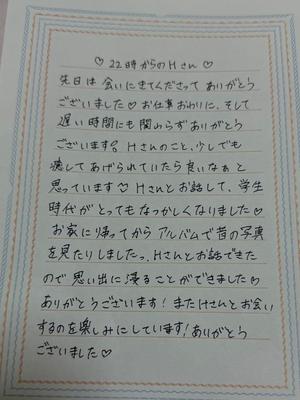 ♡ 22時からのHさん ♡
先日は会いにきてくださってありがとう
ございました♡お仕事おわりに、そして
遅い時間にも関わらずありがとう
ございます。Hさんのこと、少しでも
癒してあげられていたら良いなぁと
思っています♡Hさんとお話して、学生
時代がとってもなつかしくなりました♡
お家に帰ってからアルバムで昔の写真
を見たりしましたっ、Hさんとお話できた
ので思い出に浸ることができました♡
ありがとうございます!またHさんとお会い
するのを楽しみにしています!ありがとう
ございました♡